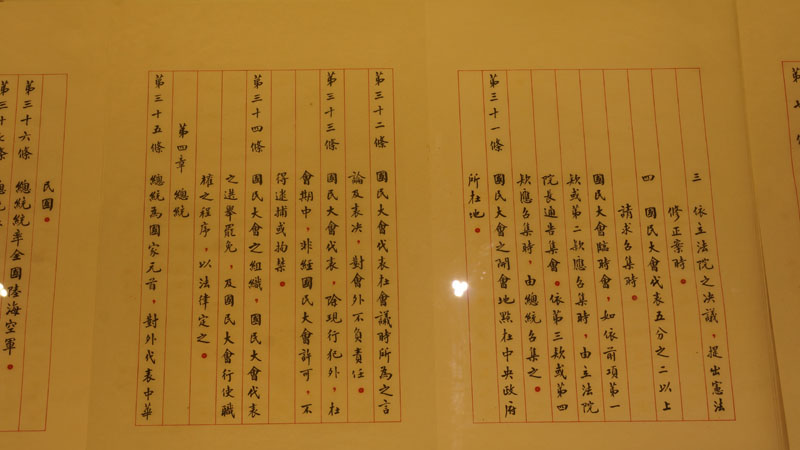 三　依立法院之决議，提出憲法
修正案時。
四　國民大會代表五分之二以上
請求召集時。
國民大會臨時會，如依前項第一
款或第二款應召集時，由立法院
院長通告集會。依第三款或第四
款應召集時，由總統召集之。
第三十一條　國民大會之開會地點在中央政府
所在地。
第三十二條　國民大會代表在會議時所為之言
論及表决，對會外不負責任。
第三十三條　國民大會代表，除現行犯外，在
會期中，非經國民大會許可，不
得逮捕或拘禁。
第三十四條　國民大會之組織，國民大會代表
之選舉罷免，及國民大會行使職
權之程序，以法律定之。
第四章　總統
第三十五條　總統為國家元首，對外代表中華
民國。
第三十六條　總統統率全國陸海空軍。
第三十七條　總統